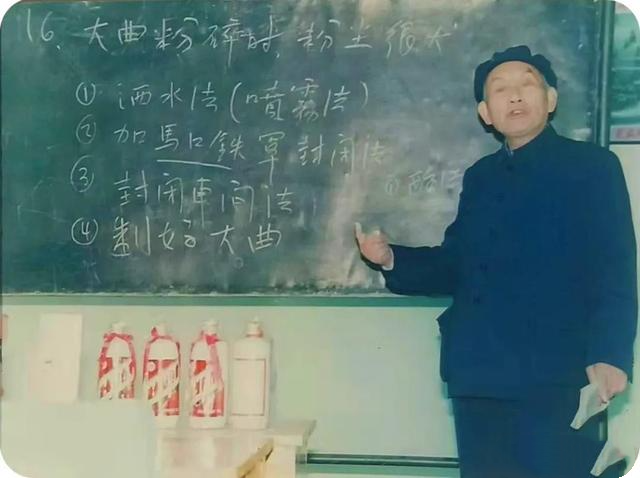 16、大曲粉碎时,粉尘很大
① 洒水法(喷霧法)
② 加馬口鉄罩封闭法
③ 封闭車间法
④ 制好大曲